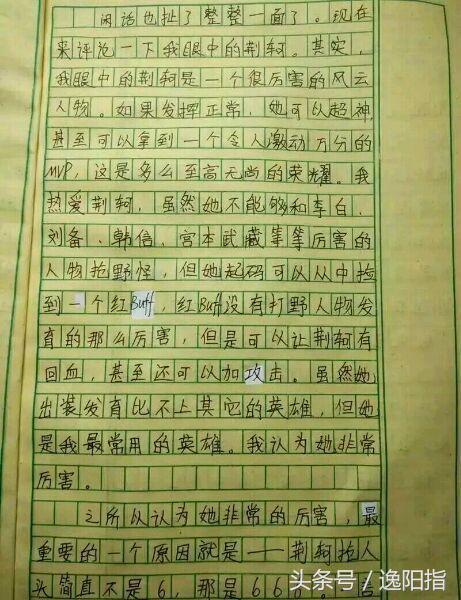 闲话也扯了整整一面了。现在
来评论一下我眼中的荆轲。其实，
我眼中的荆轲是一个很厉害的风云
人物。如果发挥正常，她可以超神，
甚至可以拿到一个令人激动万分的
MVP，这是多么至高无尚的荣耀。我
热爱荆轲，虽然她不能够和李白、
刘备、韩信、宫本武藏等等厉害的
人物抢野怪，但她起码可以从中捡
到一个红Buff，红Buff没有打野人物发
育的那么厉害，但是可以让荆轲有
回血，甚至还可以加攻击。虽然她
出装发育比不上其它的英雄，但她
是我最常用的英雄。我认为她非常
厉害。
之所以认为她非常的厉害，最
重要的一个原因就是——荆轲抢人
头简直不是6，那是666。
头条号／逸阳指